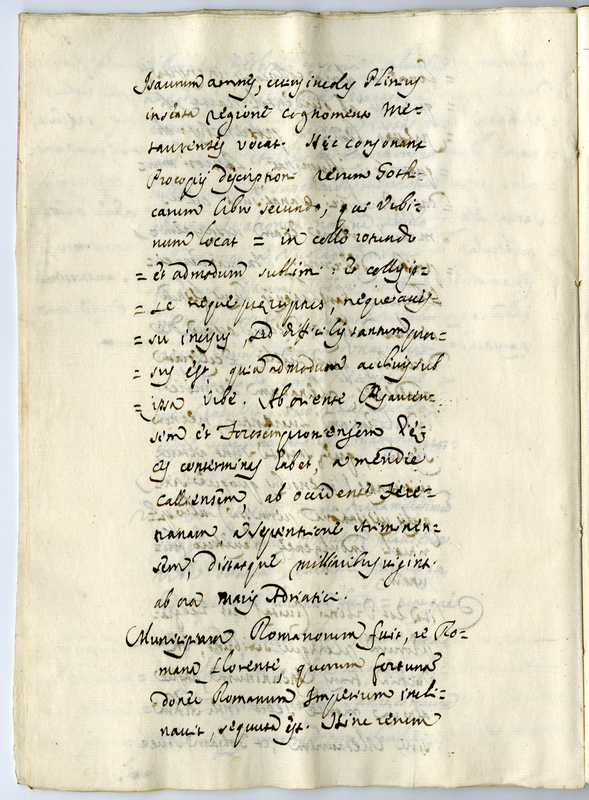 Isaurum amnes, cuius incolas Plinius
inserta regione cognomento Me-
taurenses vocat. Hęc consonant
Procopij descriptioni rerum Goth-
carum libro secundo, qui Urbi-
num locat = in colle rotundo
= et admodum sublimi. Is collis is-
= te neque preruptus, neque acces-
= su incisus, sed difficilis tantum pror-
= sus est, quia admodum acclivis sub
= ipsa Urbe. Ab oriente Pisauren-
sem et Forosemproniensem Dię-
ces conterminas habet, a meridie
calliensem, ab occidente Fere-
tranam, a septentrione Ariminen-
sem, distatque milliaribus vigint.
ab ora maris Adriatici.
Municipium Romanorum fuit, re Ro-
mana florente, quorum fortuna
donec Romanum Imperium incli-
navit, sequuta est. Hinc rerum